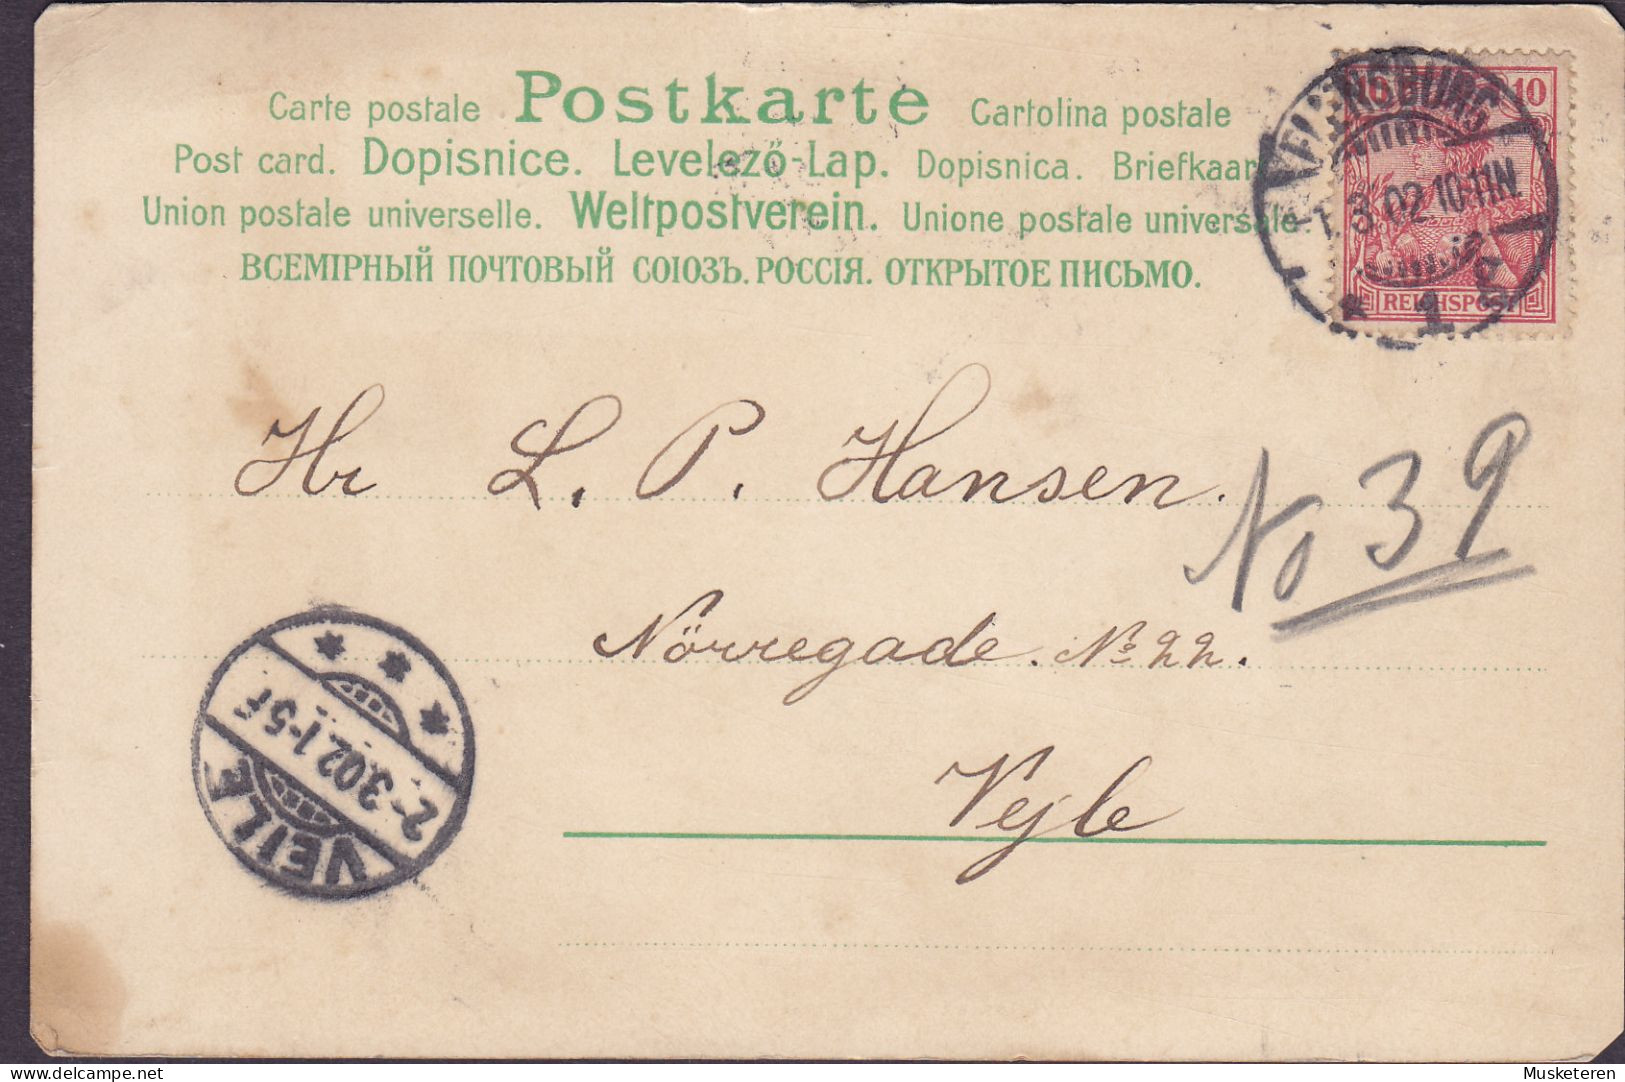 Carte postale Postkarte Cartolina postale
Post card. Dopisnice. Levelező-Lap. Dopisnica. Briefkaart
Union postale universelle. Weltpostverein. Unione postale universale.
ВСЕМІРНЫЙ ПОЧТОВЫЙ СОЮЗЪ. РОССІЯ. ОТКРЫТОЕ ПИСЬМО.
10 10
FLENSBURG
1.3.02.10-11N.
* 1
REICHSPOST
Hr L. P. Hansen.
No 39
Nörregade. No 22.
Vejle
2-3.02.1-5F
VEILE
delcampe.net
Musketeren